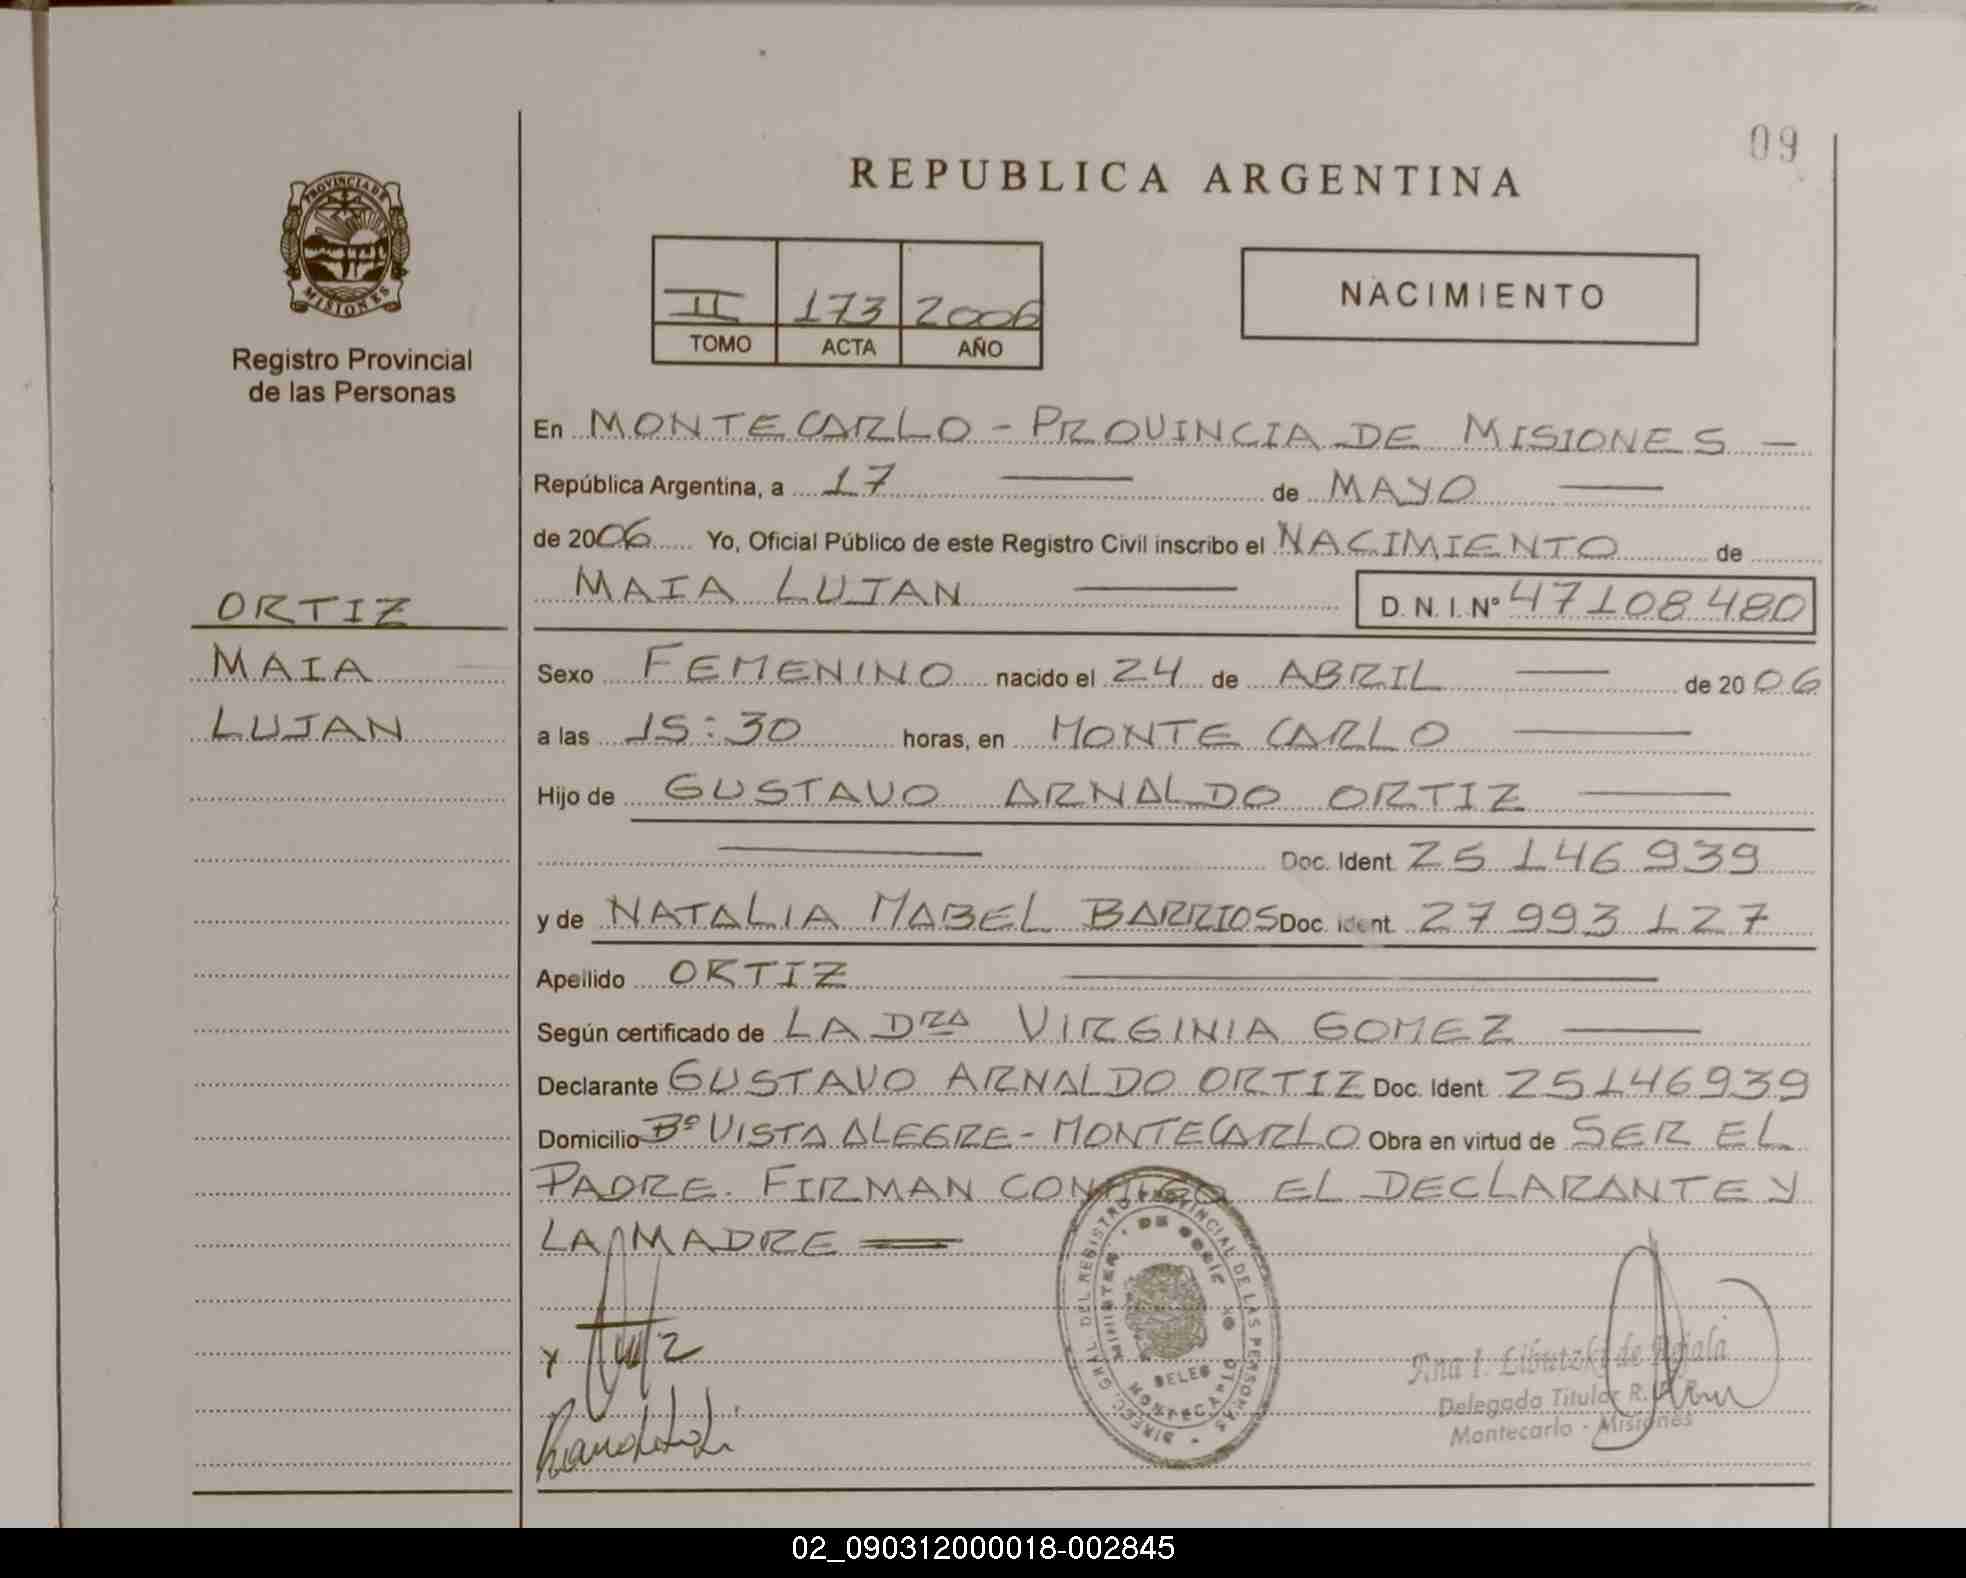 09
REPUBLICA ARGENTINA
PROVINCIA DE
MISIONES
Registro Provincial
de las Personas
II 173 2006
TOMO ACTA AÑO
NACIMIENTO
En MONTECARLO - PROVINCIA DE MISIONES -
República Argentina, a 17 de MAYO
de 2006 Yo, Oficial Público de este Registro Civil inscribo el NACIMIENTO de
MAIA LUJAN D. N. I. Nº 47108480
ORTIZ
MAIA
LUJAN
Sexo FEMENINO nacido el 24 de ABRIL de 2006
a las 15:30 horas, en MONTE CARLO
Hijo de GUSTAVO ARNALDO ORTIZ
Doc. Ident. 25 146 939
y de NATALIA MABEL BARRIOS Doc. Ident. 27 993 127
Apellido ORTIZ
Según certificado de LA DRA VIRGINIA GOMEZ
Declarante GUSTAVO ARNALDO ORTIZ Doc. Ident. 25146939
Domicilio Bº VISTA ALEGRE - MONTECARLO Obra en virtud de SER EL
PADRE. FIRMAN CONMIGO EL DECLARANTE Y
LA MADRE
DIREC. GRAL. DEL REGISTRO PROVINCIAL DE LAS PERSONAS
Ana I. Libutzki de
Delegada Titular R.
Montecarlo - Misiones
02_090312000018-002845